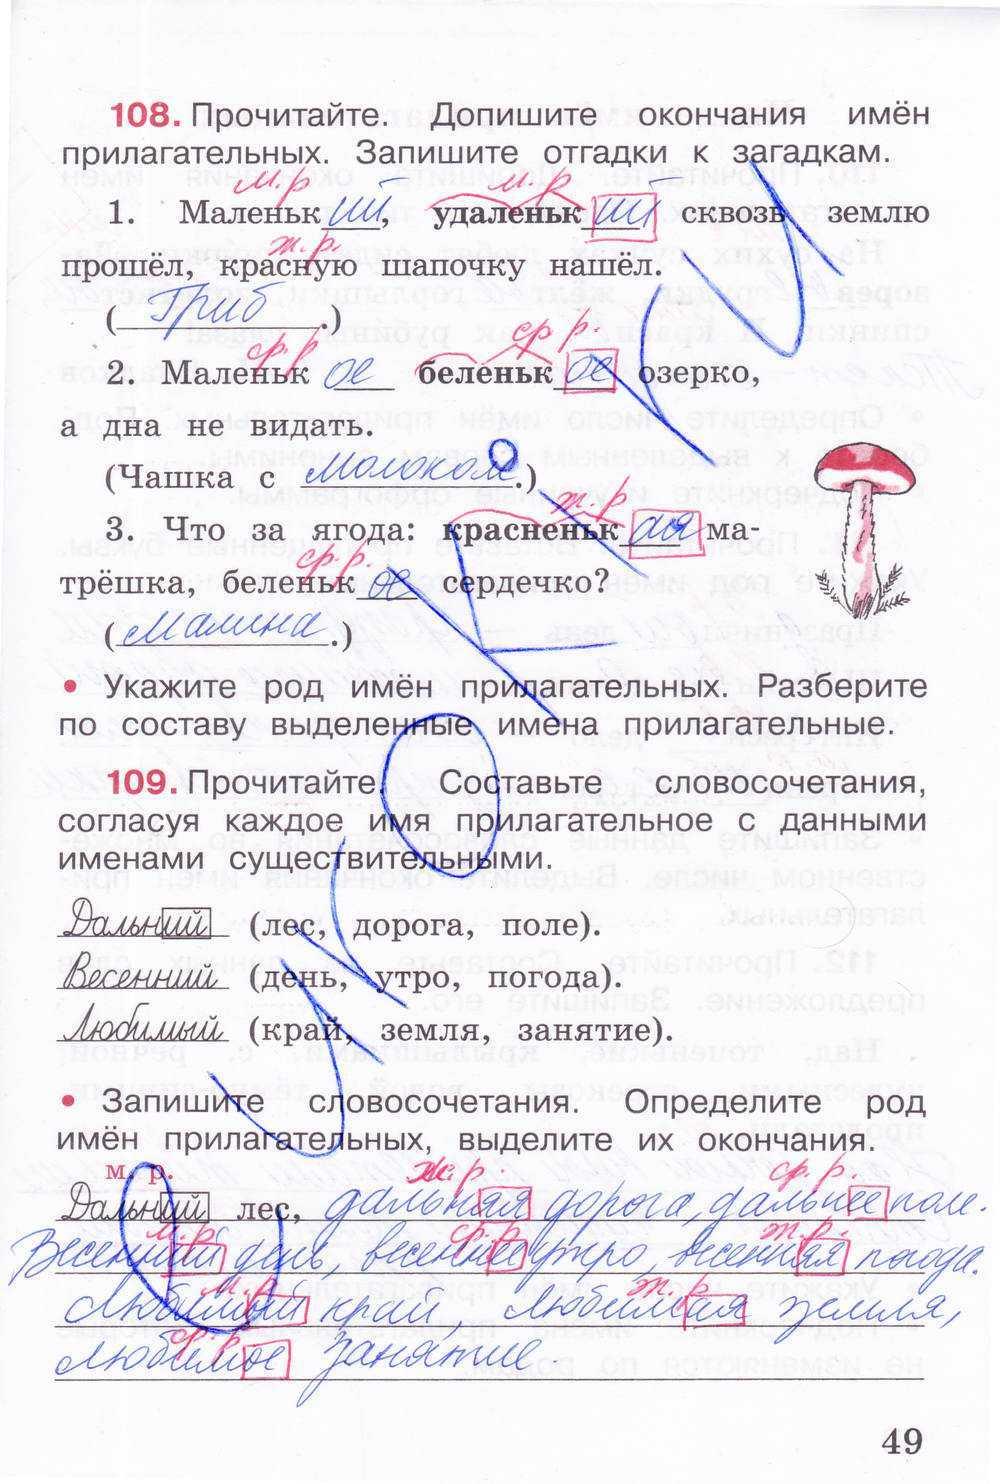 108. Прочитайте. Допишите окончания имён
прилагательных. Запишите отгадки к загадкам.
м.р м.р
1. Маленький, удаленький сквозь землю
ж.р.
прошёл, красную шапочку нашёл.
(Гриб.)
ср.р ср.р.
2. Маленькое беленькое озерко,
а дна не видать.
(Чашка с молоком.)
ж.р
3. Что за ягода: красненькая ма-
ср.р.
трёшка, беленькое сердечко?
(Малина.)
• Укажите род имён прилагательных. Разберите
по составу выделенные имена прилагательные.
109. Прочитайте. Составьте словосочетания,
согласуя каждое имя прилагательное с данными
именами существительными.
Дальний (лес, дорога, поле).
Весенний (день, утро, погода).
Любимый (край, земля, занятие).
• Запишите словосочетания. Определите род
имён прилагательных, выделите их окончания.
м. р. ж.р. ср.р.
Дальний лес, дальняя дорога, дальнее поле.
м.р ср.р ж.р.
Весенний день, весеннее утро, весенняя погода.
м.р ж.р
Любимый край, любимая земля,
ср.р
любимое занятие.
49